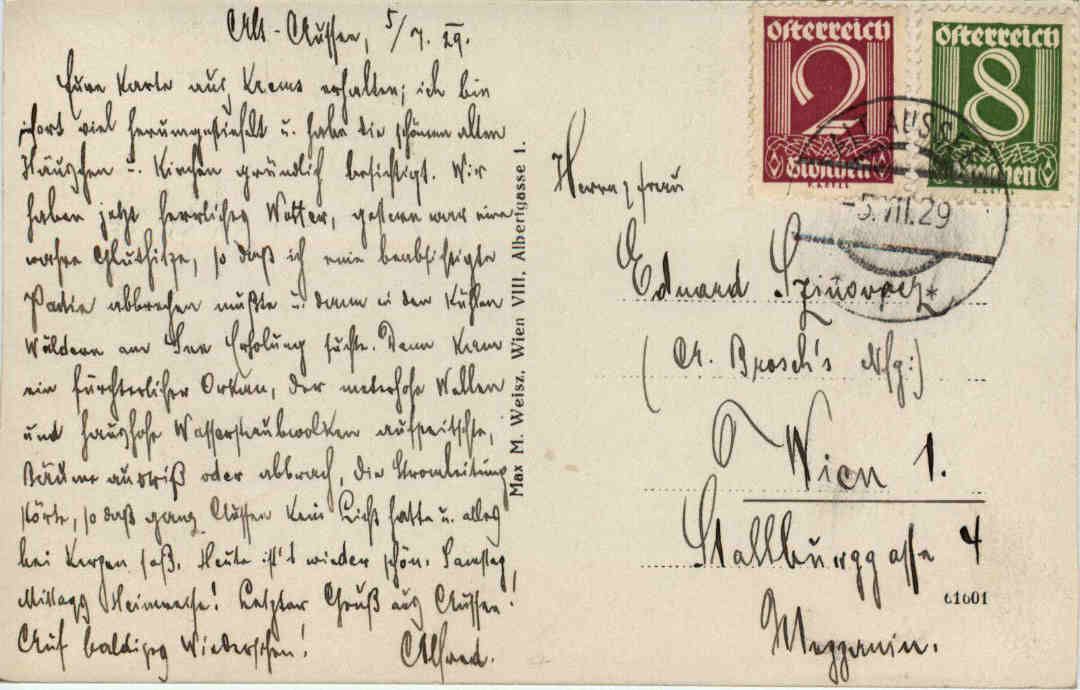 Alt-Aussee, 5/7. 29.
Eure Karte aus Krems erhalten; ich bin
dort viel herumgestiefelt u. habe die schönen alten
Häuschen u. Kirchen gründlich besichtigt. Wir
haben jetzt herrliches Wetter, gestern war eine
wahre Gluthitze, so daß ich eine beabsichtigte
Partie abbrechen mußte u. dann in den kühlen
Wäldern am See Erholung suchte. Dann kam
ein fürchterlicher Orkan, der meterhohe Wellen
und haushohe Wasserstaubwolken aufpeitschte,
Bäume ausriß oder abbrach, die Stromleitung
störte, so daß ganz Aussee kein Licht hatte u. alles
bei Kerzen saß. Heute ist's wieder schön. Samstag
Mittags Heimreise! Letzter Gruß aus Aussee!
Auf baldiges Wiedersehen!
Alfred.
Max M. Weisz, Wien VIII, Albertgasse 1.
Österreich
2
Groschen
Österreich
8
Groschen
AUSSEE
-5.VII.29
*
Herrn, Frau
Eduard
(A. Brosch's Nfg:)
Wien 1.
Stallburggasse 4
Mezzanin.
61601